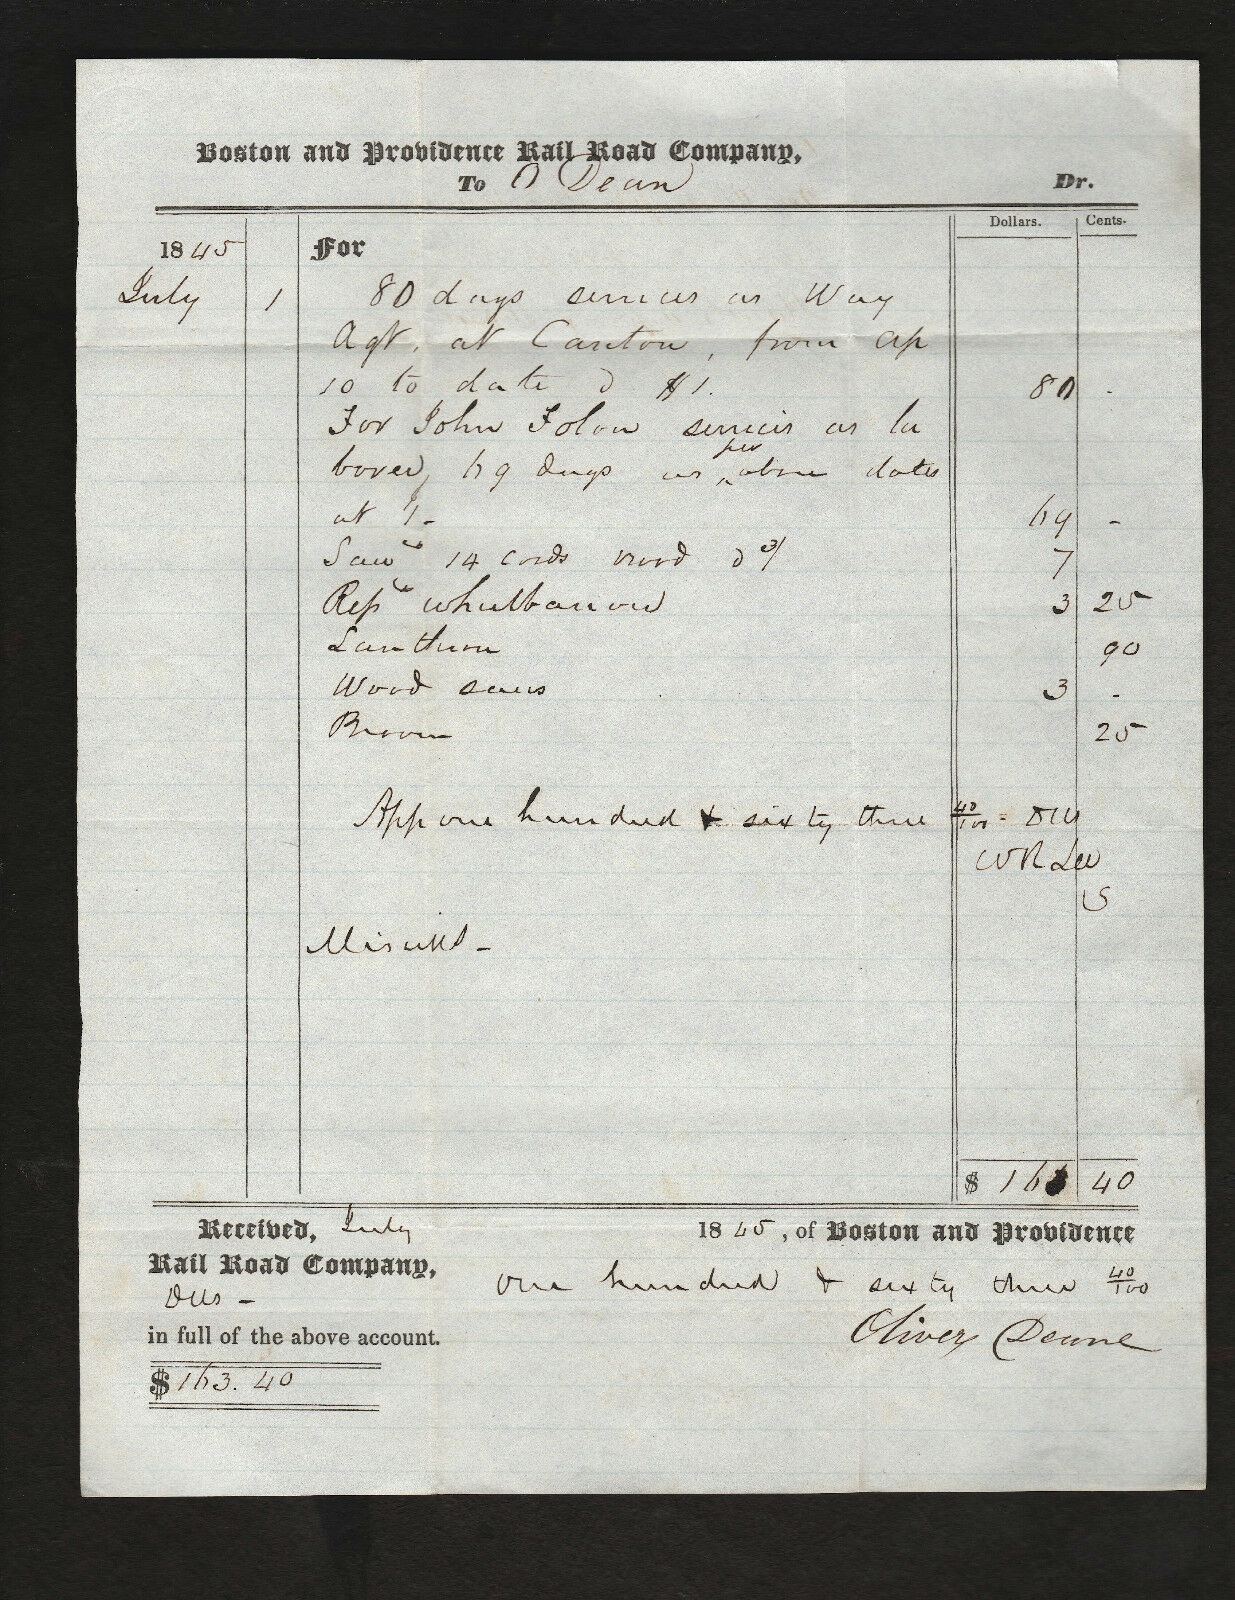 Boston and Providence Rail Road Company,
To O Dean Dr.
Dollars. Cents.
1845 For
July 1 80 days services as Way
Agt. at Canton, from Ap
10 to date @ $1. 80 -
For John Folan services as la
borer, 69 days as per above dates
at 1- 69 -
Sawg 14 cords wood @ 3/ 7
Repg whealbarrow 3 25
Lanthern 90
Wood saws 3 -
Broom 25
App one hundred & sixty three 40/100 = Dlls
WR Lee
S
$ 163 40
Received, July 1845, of Boston and Providence
Rail Road Company, one hundred & sixty three 40/100
Dlls -
in full of the above account.
Oliver Deane
$ 163.40